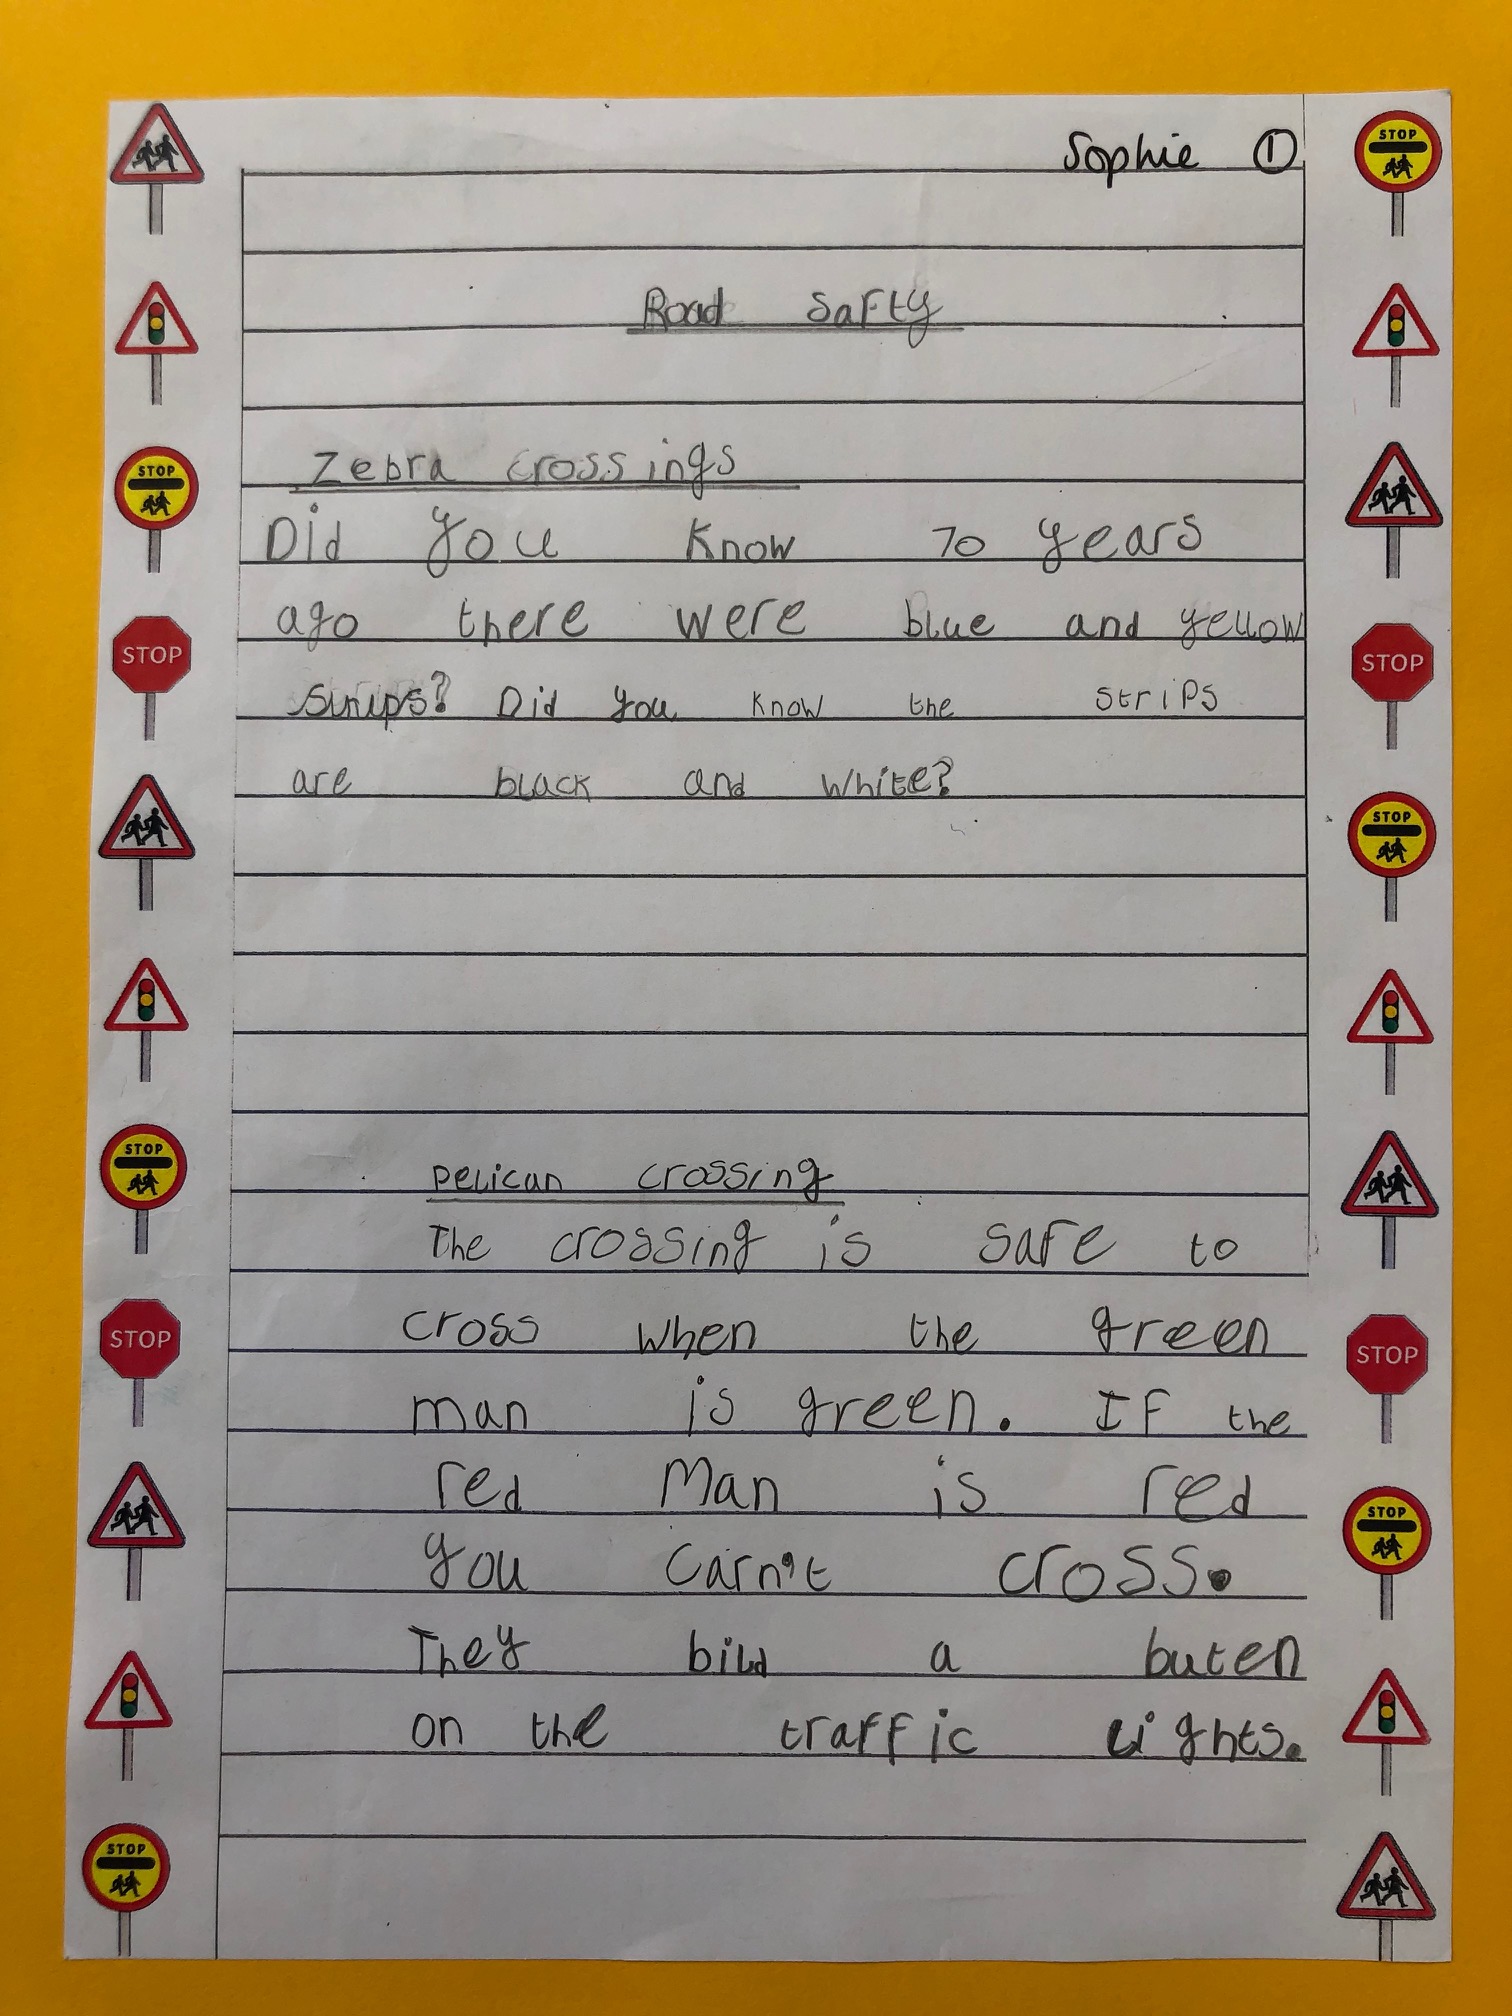 Sophie 1
Road Safty
Zebra crossings
Did you know 70 years
ago there were blue and yellow
strips? Did you know the strips
are black and white?
Pelican crossing
The crossing is safe to
cross when the green
man is green. If the
red Man is red
you Carn't cross.
They bild a buten
on the traffic lights.
STOP
STOP
STOP
STOP
STOP
STOP
STOP
STOP
STOP
STOP